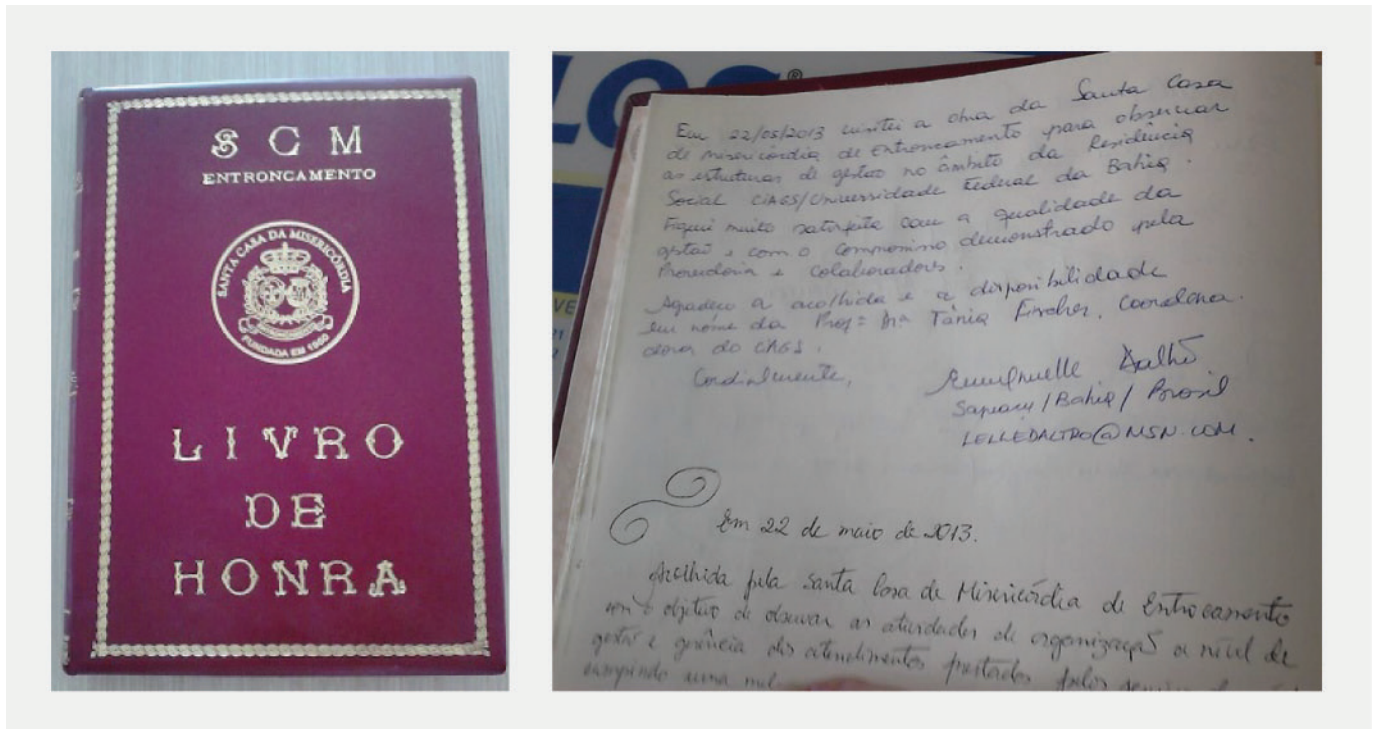 S C M
ENTRONCAMENTO
SANTA CASA DA MISERICÓRDIA
FUNDADA EM 1960
LIVRO
DE
HONRA
LOG®
Em 22/05/2013 visitei a obra da Santa Casa
de misericórdia de Entroncamento para observar
as estruturas de gestão no âmbito da Residência
Social CIAGS/Universidade Federal da Bahia.
Fiquei muito satisfeita com a qualidade da
gestão e com o compromisso demonstrado pela
Provedoria e Colaboradores.
Agradeço a acolhida e a disponibilidade
em nome da Profª Drª Tânia Fischer, Coordena
dora do CIAGS.
Cordialmente,
Emanuelle Daltro
Sapeaçu/Bahia/Brasil
LELLEDALTRO@MSN.COM.
Em 22 de maio de 2013.
Acolhida pela Santa Casa de Misericórdia de Entrocamento
com o objetivo de observar as atividades de organização a nível de
gestão e gerência dos atendimentos prestados pelos